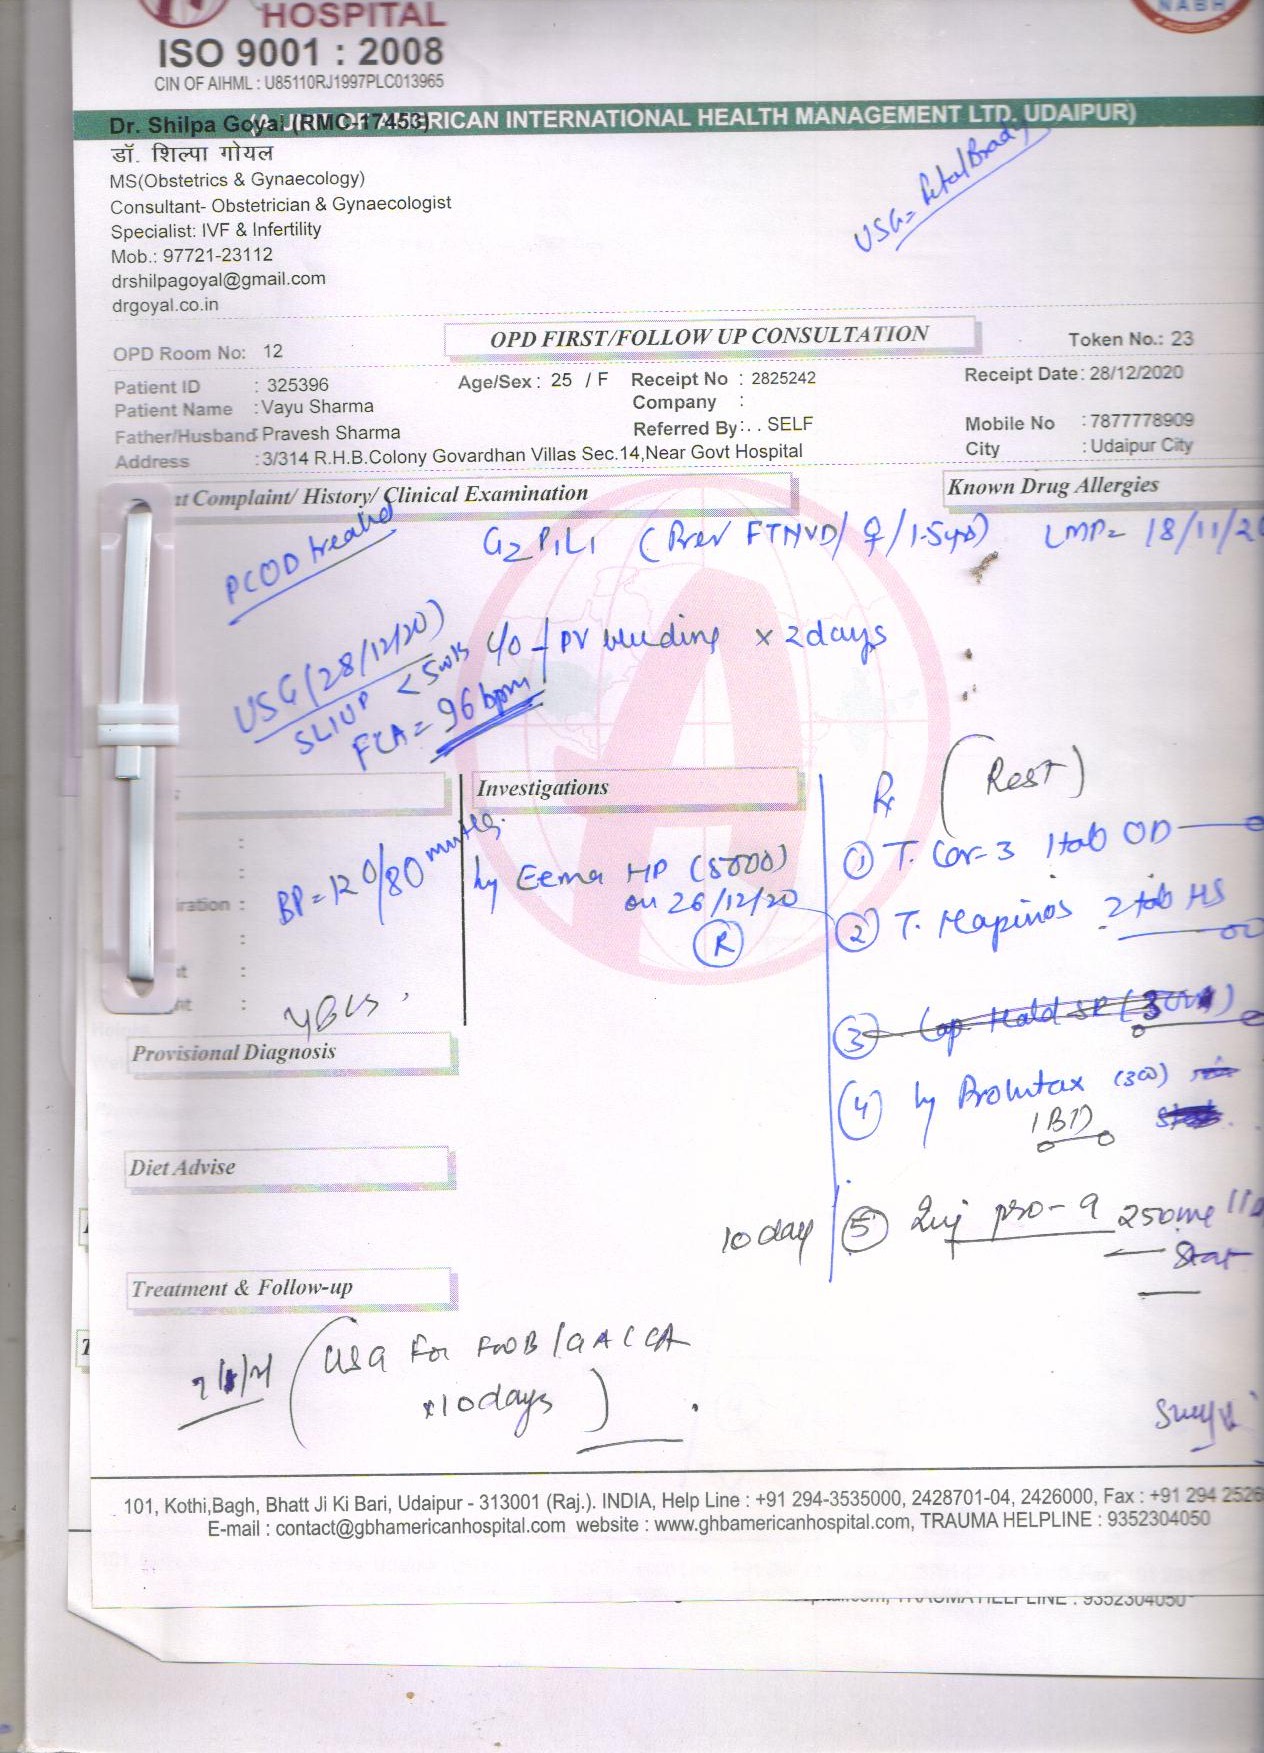 HOSPITAL
NABH
ISO 9001 : 2008
CIN OF AIHML : U85110RJ1997PLC013965
(A UNIT OF AMERICAN INTERNATIONAL HEALTH MANAGEMENT LTD. UDAIPUR)
Dr. Shilpa Goyal (RMC-17453)
डॉ. शिल्पा गोयल
MS(Obstetrics & Gynaecology)
Consultant- Obstetrician & Gynaecologist
Specialist: IVF & Infertility
Mob.: 97721-23112
drshilpagoyal@gmail.com
drgoyal.co.in
USG= Fetal Brady
OPD Room No: 12
OPD FIRST/FOLLOW UP CONSULTATION
Token No.: 23
Patient ID : 325396 Age/Sex : 25 / F Receipt No : 2825242 Receipt Date: 28/12/2020
Patient Name : Vayu Sharma Company :
Father/Husband: Pravesh Sharma Referred By: . . SELF Mobile No : 7877778909
Address : 3/314 R.H.B.Colony Govardhan Villas Sec.14,Near Govt Hospital City : Udaipur City
t Complaint/ History/ Clinical Examination
Known Drug Allergies
PCOD treated
G2P1L1 (Prev FTNVD/ ♀/1.5yrs) LMP= 18/11/20
USG (28/12/20)
SLIUP <5wks
FCA = 96 bpm
c/o - PV bleeding x 2 days
Investigations
Rx (Rest)
BP = 120/80 mmHg.
Hy Eema HP (5000)
on 26/12/20
(R)
① T. Cor-3 1tab OD
② T. Mapinos 2 tab HS
③ Cap
④ (300)
1BD
10 day ⑤ Inj pro-9 250mg
Stat
iration :
Provisional Diagnosis
Diet Advise
Treatment & Follow-up
USG For FWB/GA CCA
x10days
101, Kothi,Bagh, Bhatt Ji Ki Bari, Udaipur - 313001 (Raj.). INDIA, Help Line : +91 294-3535000, 2428701-04, 2426000, Fax : +91 294 2526
E-mail : contact@gbhamericanhospital.com website : www.ghbamericanhospital.com, TRAUMA HELPLINE : 9352304050
TRAUMA HELPLINE : 9352304050